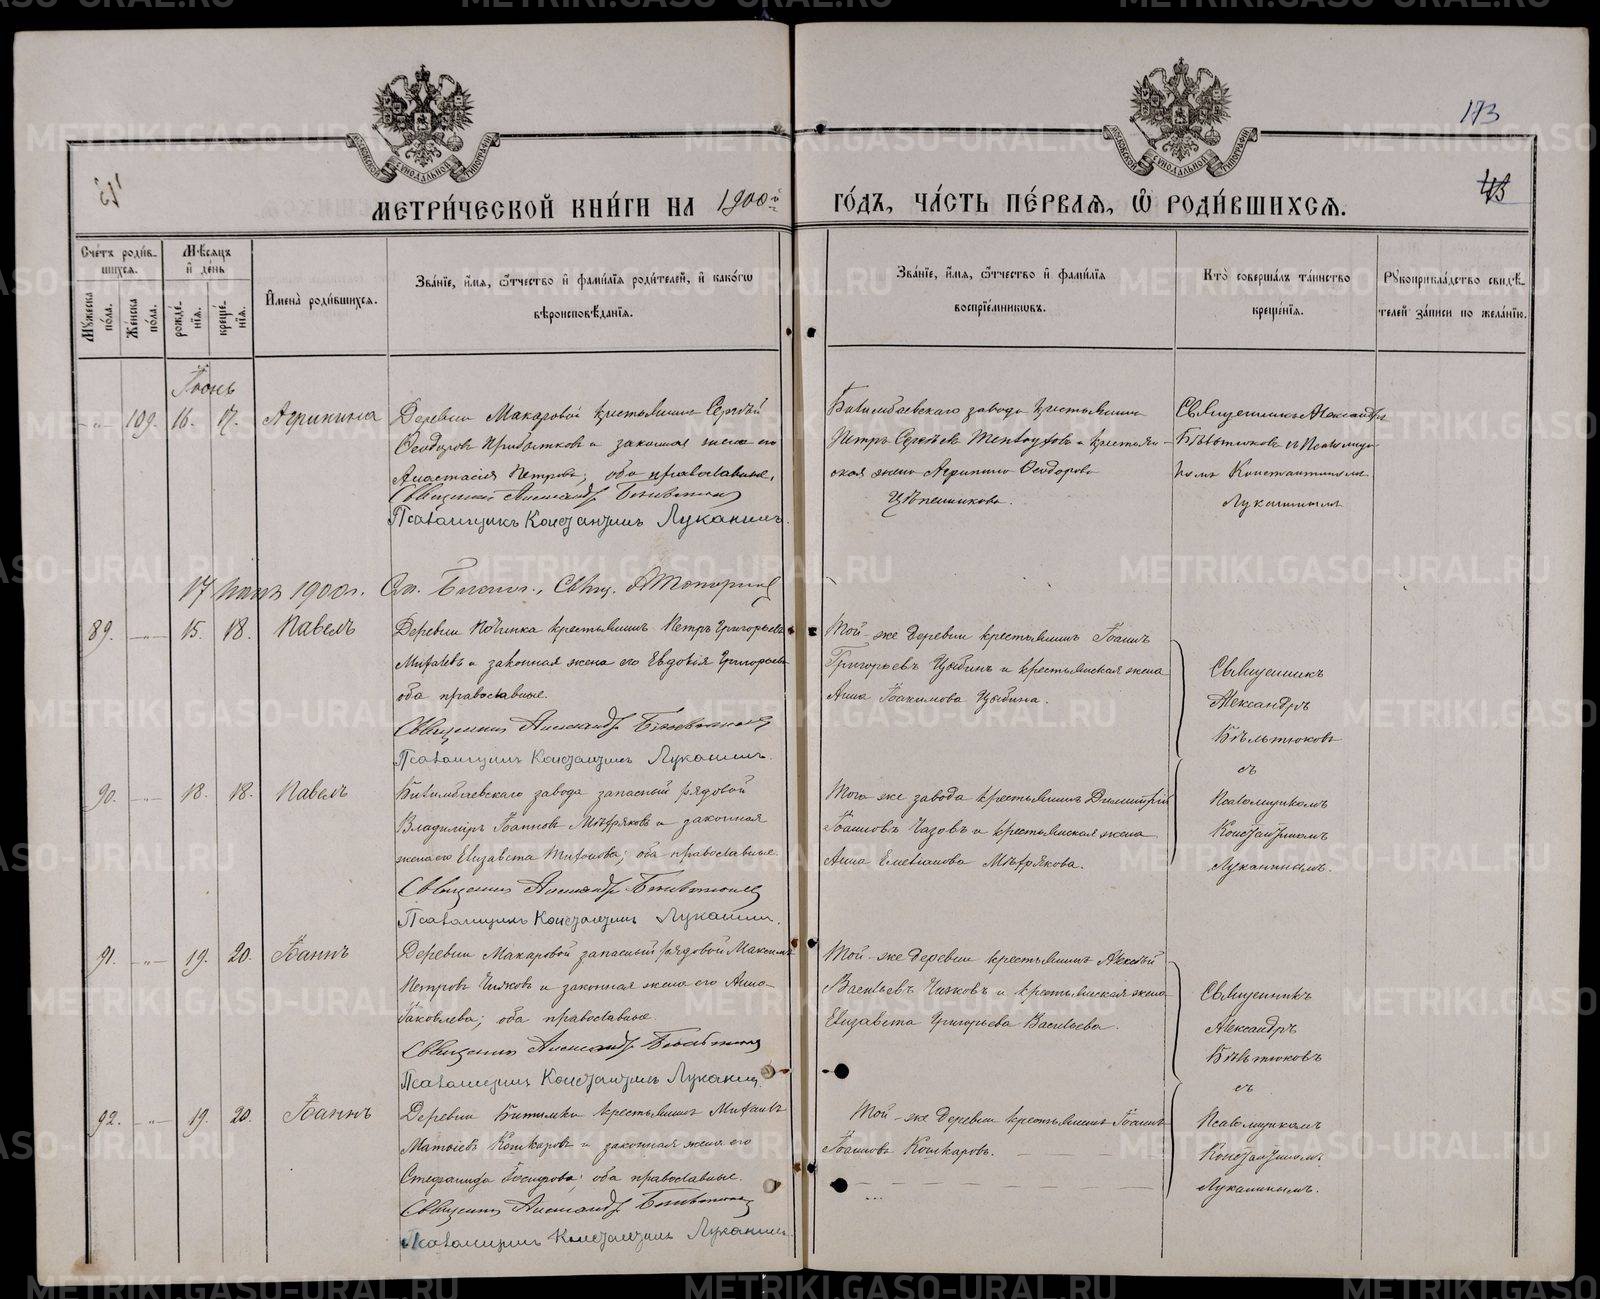 173
43
МЕТРИ́ЧЕСКОЙ КНИ́ГИ НА 1900й ГО́ДЪ, ЧА́СТЬ ПЕ́РВАѦ, Ѡ РОДИ́ВШИХСѦ.
Сче́тъ роди́вшихсѧ.
Мꙋ́жеска по́ла.
Же́нска по́ла.
Мѣ́сѧцъ и҆ де́нь
рожде́нїѧ.
креще́нїѧ.
И҆мена̀ роди́вшихсѧ.
Зва́нїе, и҆́мѧ, ѻ҆́тчество и҆ фами́лїѧ роди́телей, и҆ како́гѡ вѣроисповѣ́данїѧ.
Зва́нїе, и҆́мѧ, ѻ҆́тчество и҆ фами́лїѧ воспрїе́мникѡвъ.
Кто̀ соверша́лъ та́инство креще́нїѧ.
Рꙋкоприкла́дство свидѣ́телей за́писи по жела́нїю.
Іюнь
109. 16. 17. Агрипина
Деревни Макаровой крестьянинъ Сергѣй
Ѳеодоровъ Прибытковъ и законная жена его
Анастасія Петрова; оба православные.
Священникъ Александръ
Псаломщикъ Константинъ Луканинъ.
Билимбаевскаго завода крестьянинъ
Петръ Сергѣевъ и крестьян-
ская жена Агрипина Ѳеодорова
Священникъ Александръ
Бѣльтюковъ съ Псаломщи-
комъ Константиномъ
Луканинымъ
17 1900 г. Свящ.
89. 15. 18. Павелъ
Деревни Починка крестьянинъ Петръ Григорьевъ
и законная жена его Евдокія Григорьева
оба православные.
Священникъ Александръ
Псаломщикъ Константинъ Луканинъ.
Той-же деревни крестьянинъ Іоаннъ
Григорьевъ Цыбинъ и крестьянская жена
Анна Іоакимова Цыбина.
Священникъ
Александръ
Бѣльтюковъ
съ
Псаломщикомъ
Константиномъ
Луканинымъ.
90. 18. 18. Павелъ
Билимбаевскаго завода запасный рядовой
Владиміръ Іоанновъ Мѣхряковъ и законная
жена его Елизавета Тихонова; оба православные.
Священникъ Александръ
Псаломщикъ Константинъ Луканинъ.
Того-же завода крестьянинъ Димитрій
Іоанновъ Чазовъ и крестьянская жена
Анна Емельянова Мѣхрякова.
91. 19. 20. Іоаннъ
Деревни Макаровой запасный рядовой Максимъ
Петровъ Чижовъ и законная жена его Анна
Іаковлева; оба православные.
Священникъ Александръ
Псаломщикъ Константинъ Луканинъ.
Той-же деревни крестьянинъ Алексѣй
Васильевъ Чижовъ и крестьянская жена
Елизавета Григорьева Васильева.
Священникъ
Александръ
Бѣльтюковъ
съ
Псаломщикомъ
Константиномъ
Луканинымъ.
92. 19. 20. Іоаннъ
Деревни Битимки крестьянинъ Михаилъ
Матвіевъ Кошкаровъ и законная жена его
Стефанида Іосифова; оба православные.
Священникъ Александръ
Псаломщикъ Константинъ Луканинъ.
Той-же деревни крестьянинъ Іоаннъ
Іоанновъ Кошкаровъ.
METRIKI.GASO-URAL.RU